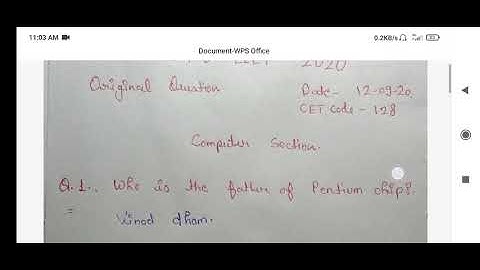 11:03 AM
0.2KB/s
Document-WPS Office
2020
Original Question
Date - 12-09-20.
CET code - 128
Computer Section.
Q.1.. Who is the father of Pentium chip?.
= Vinod dham.